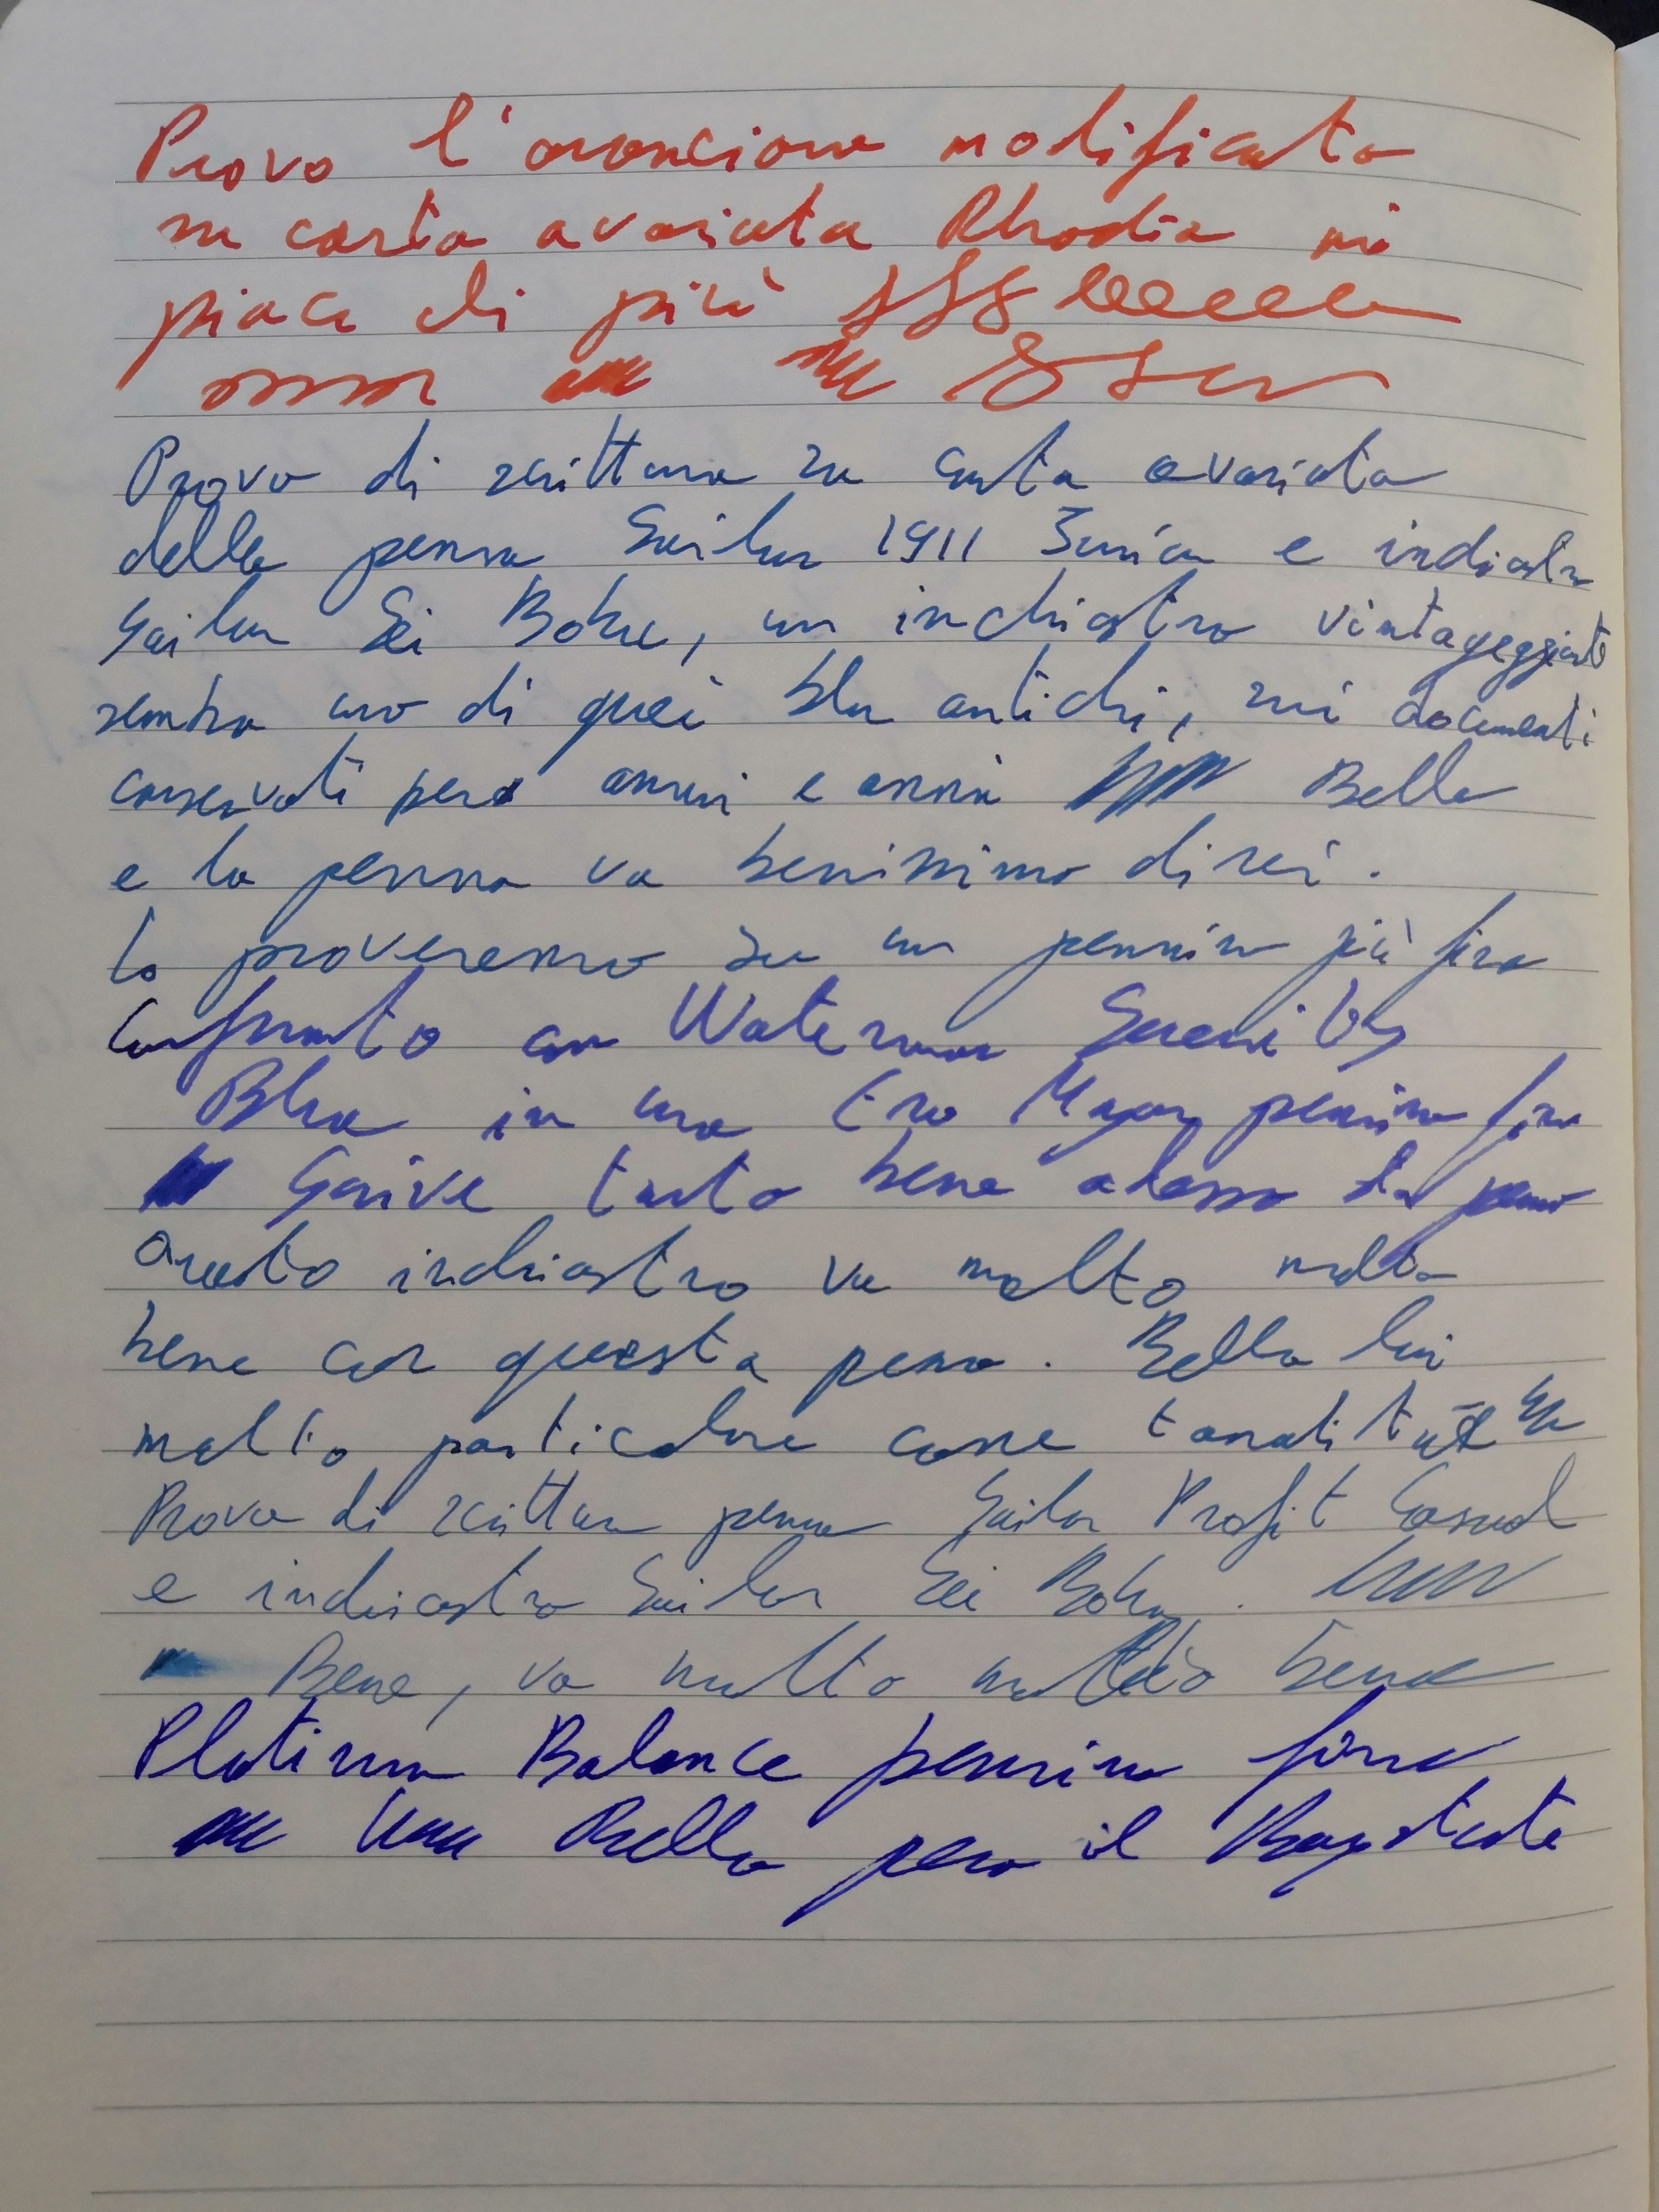 Provo l'arancione modificato
su carta avariata Rhodia mi
piace di più
Prova di scrittura su carta avariata
della penna Sailor 1911 e inchiostro
Sailor Sei Boku, un inchiostro vintageggiante
sembra uno di quei blu antichi, sui documenti
conservati per anni e anni Bello
e la penna va benissimo direi.
Lo proveremo su un pennino più fine
Confronto con Waterman Serenity
Blu in una pennino fine
Scrive tanto bene adesso la penna
Questo inchiostro va molto molto
bene con questa penna. Bello lui
molto particolare come tonalità
Prova di scrittura penna Sailor Profit Casual
e inchiostro Sailor Sei Boku.
Bene, va molto molto bene
Platinum Balance pennino fine
Bello però il